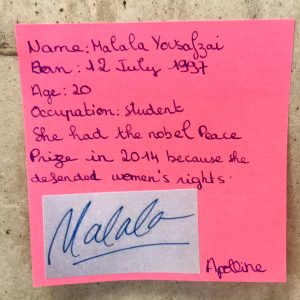 Name: Malala Yousafzai
Born: 12 July 1997
Age: 20
Occupation: student
She had the nobel Peace
Prize in 2014 because she
defended women's rights.
Malala
Apolline